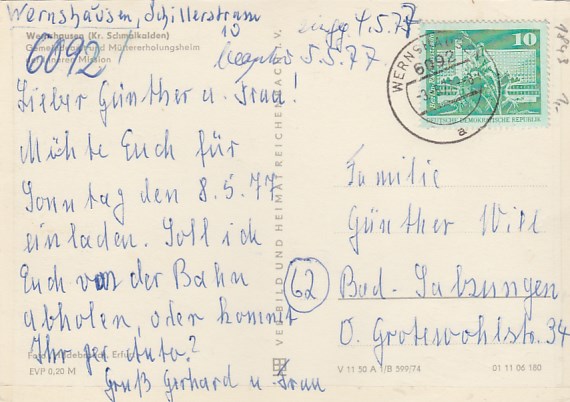 Wernshausen, Schillerstraße
10
eingg. 4.5.77
5.5.77
Wernshausen (Kr. Schmalkalden)
Gemeindedienst und Müttererholungsheim
der Inneren Mission
6092
Lieber Günther u. Frau!
Möchte Euch für
Sonntag den 8.5.77
einladen. Soll ich
Euch von der Bahn
abholen, oder kommt
Ihr per Auto?
Gruß Gerhard u. Frau
Foto: Hildebrandt, Erfurt
EVP 0,20 M
VERLAG BILD UND HEIMAT REICHENBACH I. V.
V 11 50 A 1/B 599/74
01 11 06 180
WERNSHAUSEN
6092
a
10
DEUTSCHE DEMOKRATISCHE REPUBLIK
Familie
Günther Will
62
Bad-Salzungen
O. Grotewohlstr. 34